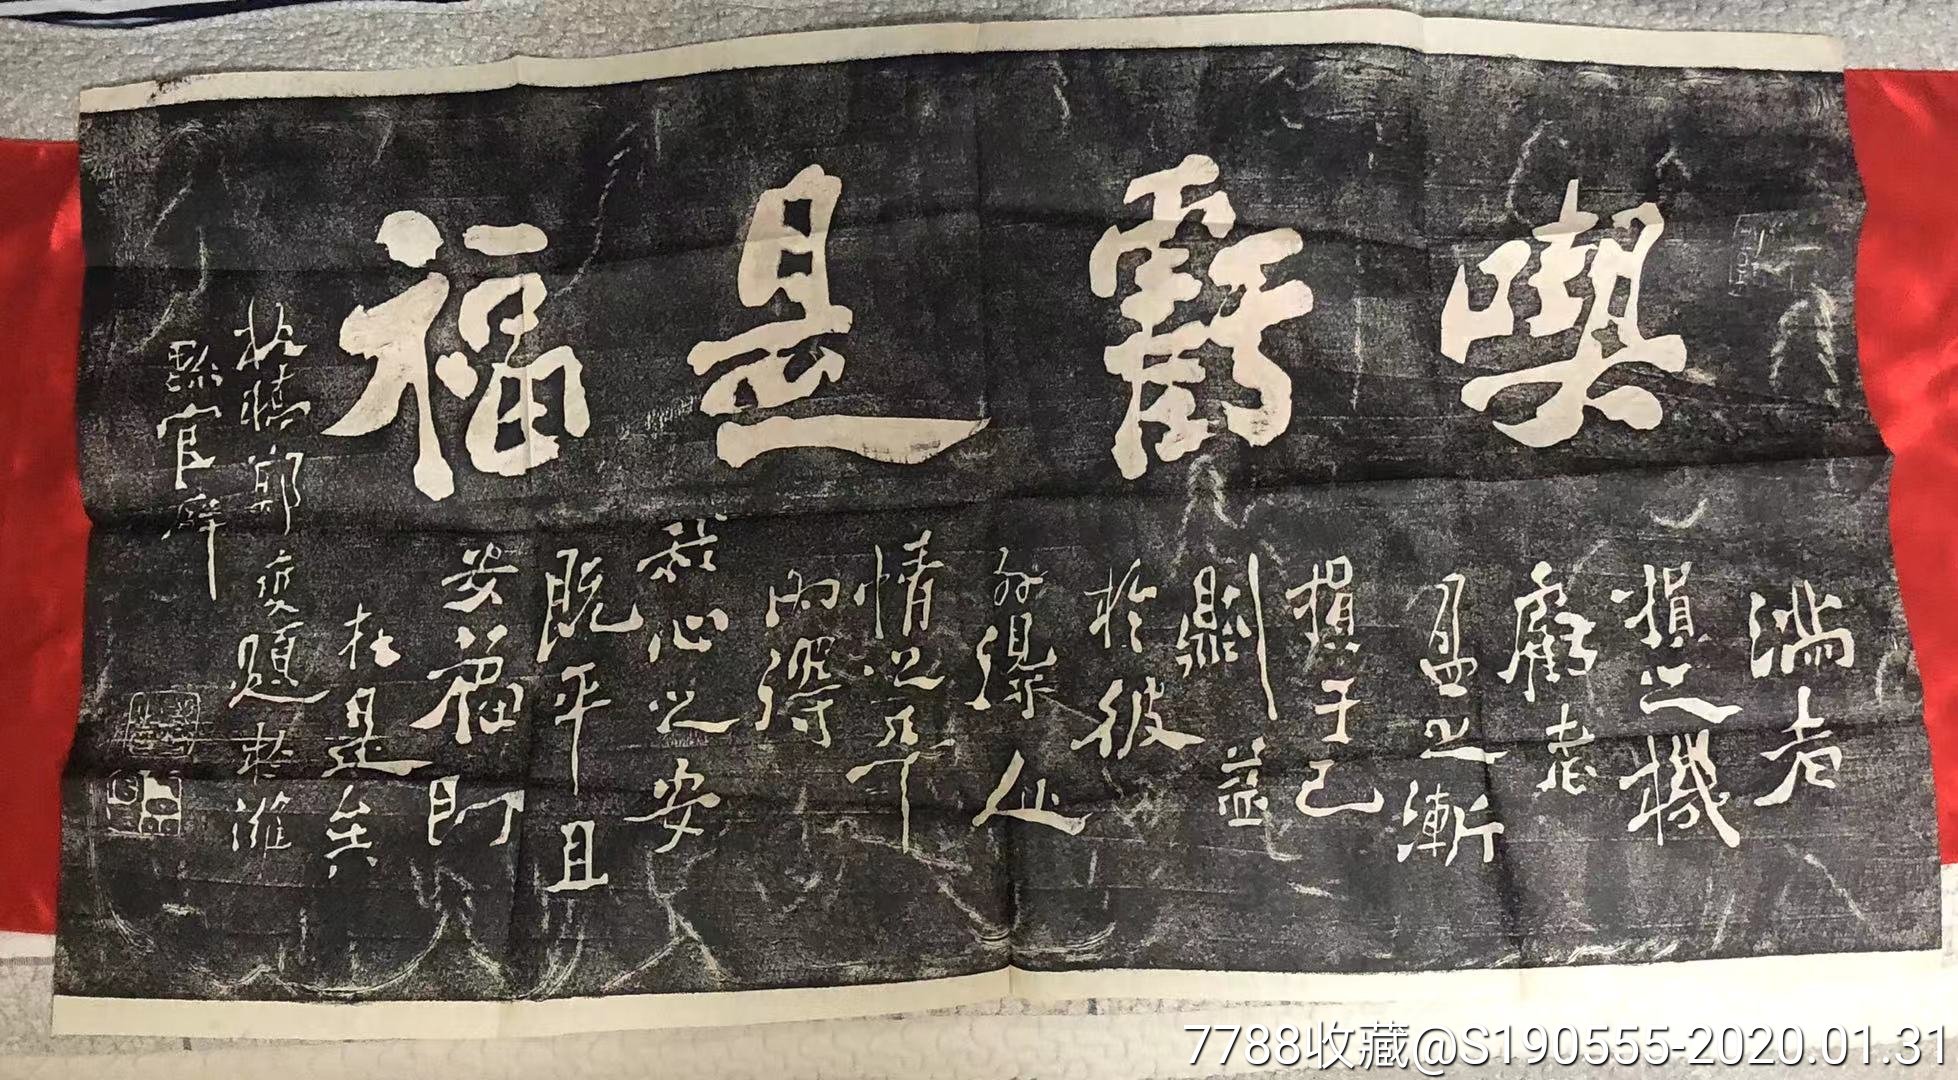 喫虧是福
滿者
損之機
虧者
盈之漸
損于己
則益
於彼
外得人
情之平
內得
我心之安
既平且
安福即
在是矣
板橋鄭燮題於濰
縣官廨
7788收藏@S190555-2020.01.31